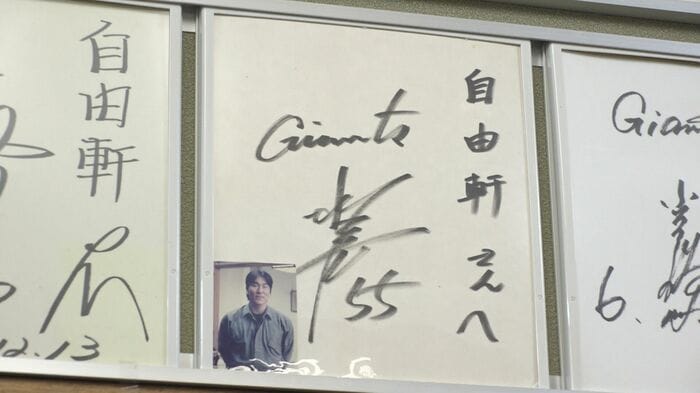 自由軒
12.13
自由軒さんへ
Giants
55
Gian
6.